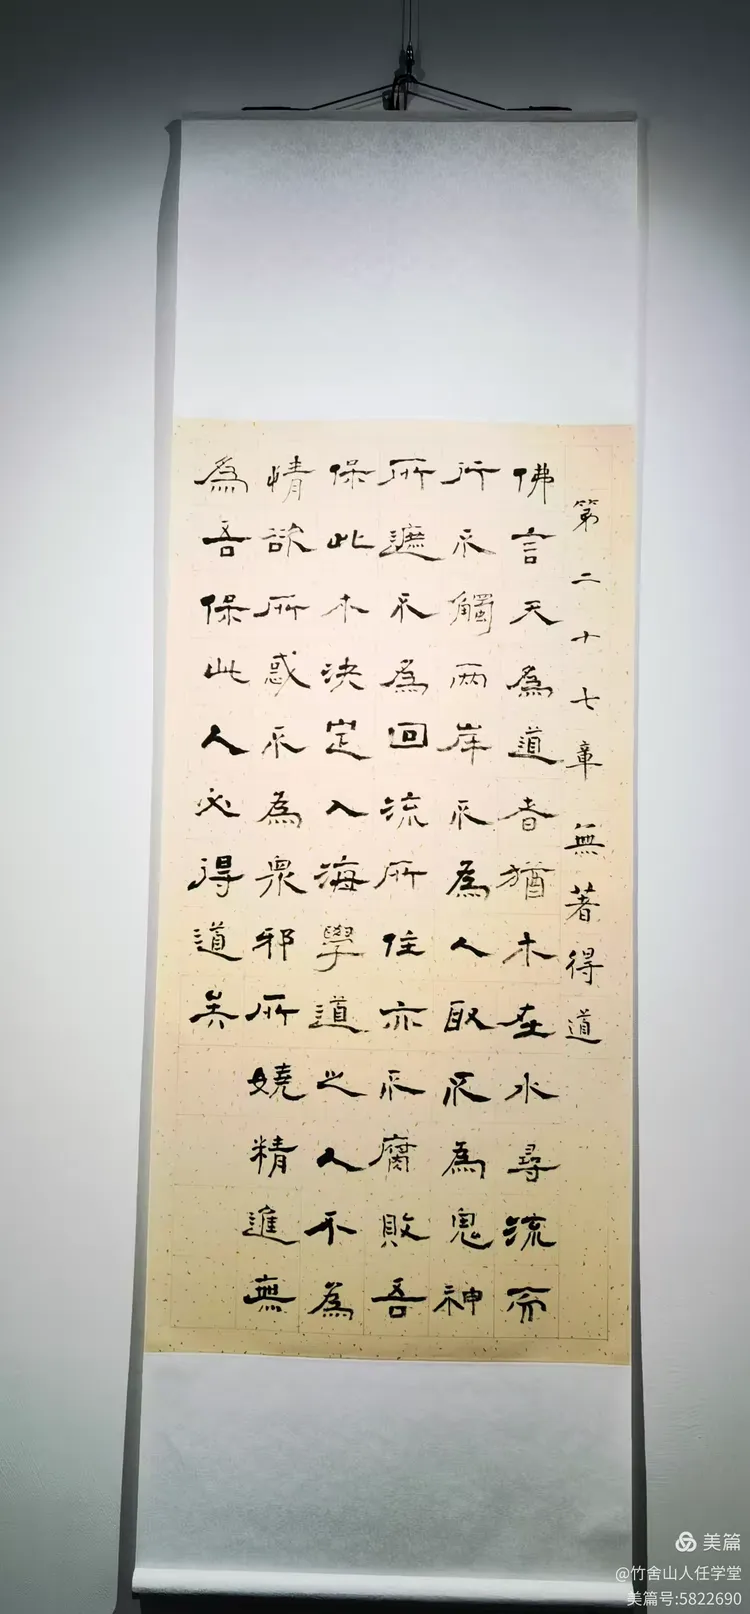 第二十七章 無著得道
佛言天為道者猶木在水尋流而
行不觸兩岸不為人取不為鬼神
所遮不為回流所住亦不腐敗吾
保此木決定入海學道之人不為
情欲所惑不為眾邪所嬈精進無
為吾保此人必得道矣
美篇
@竹舍山人任学堂
美篇号:5822690